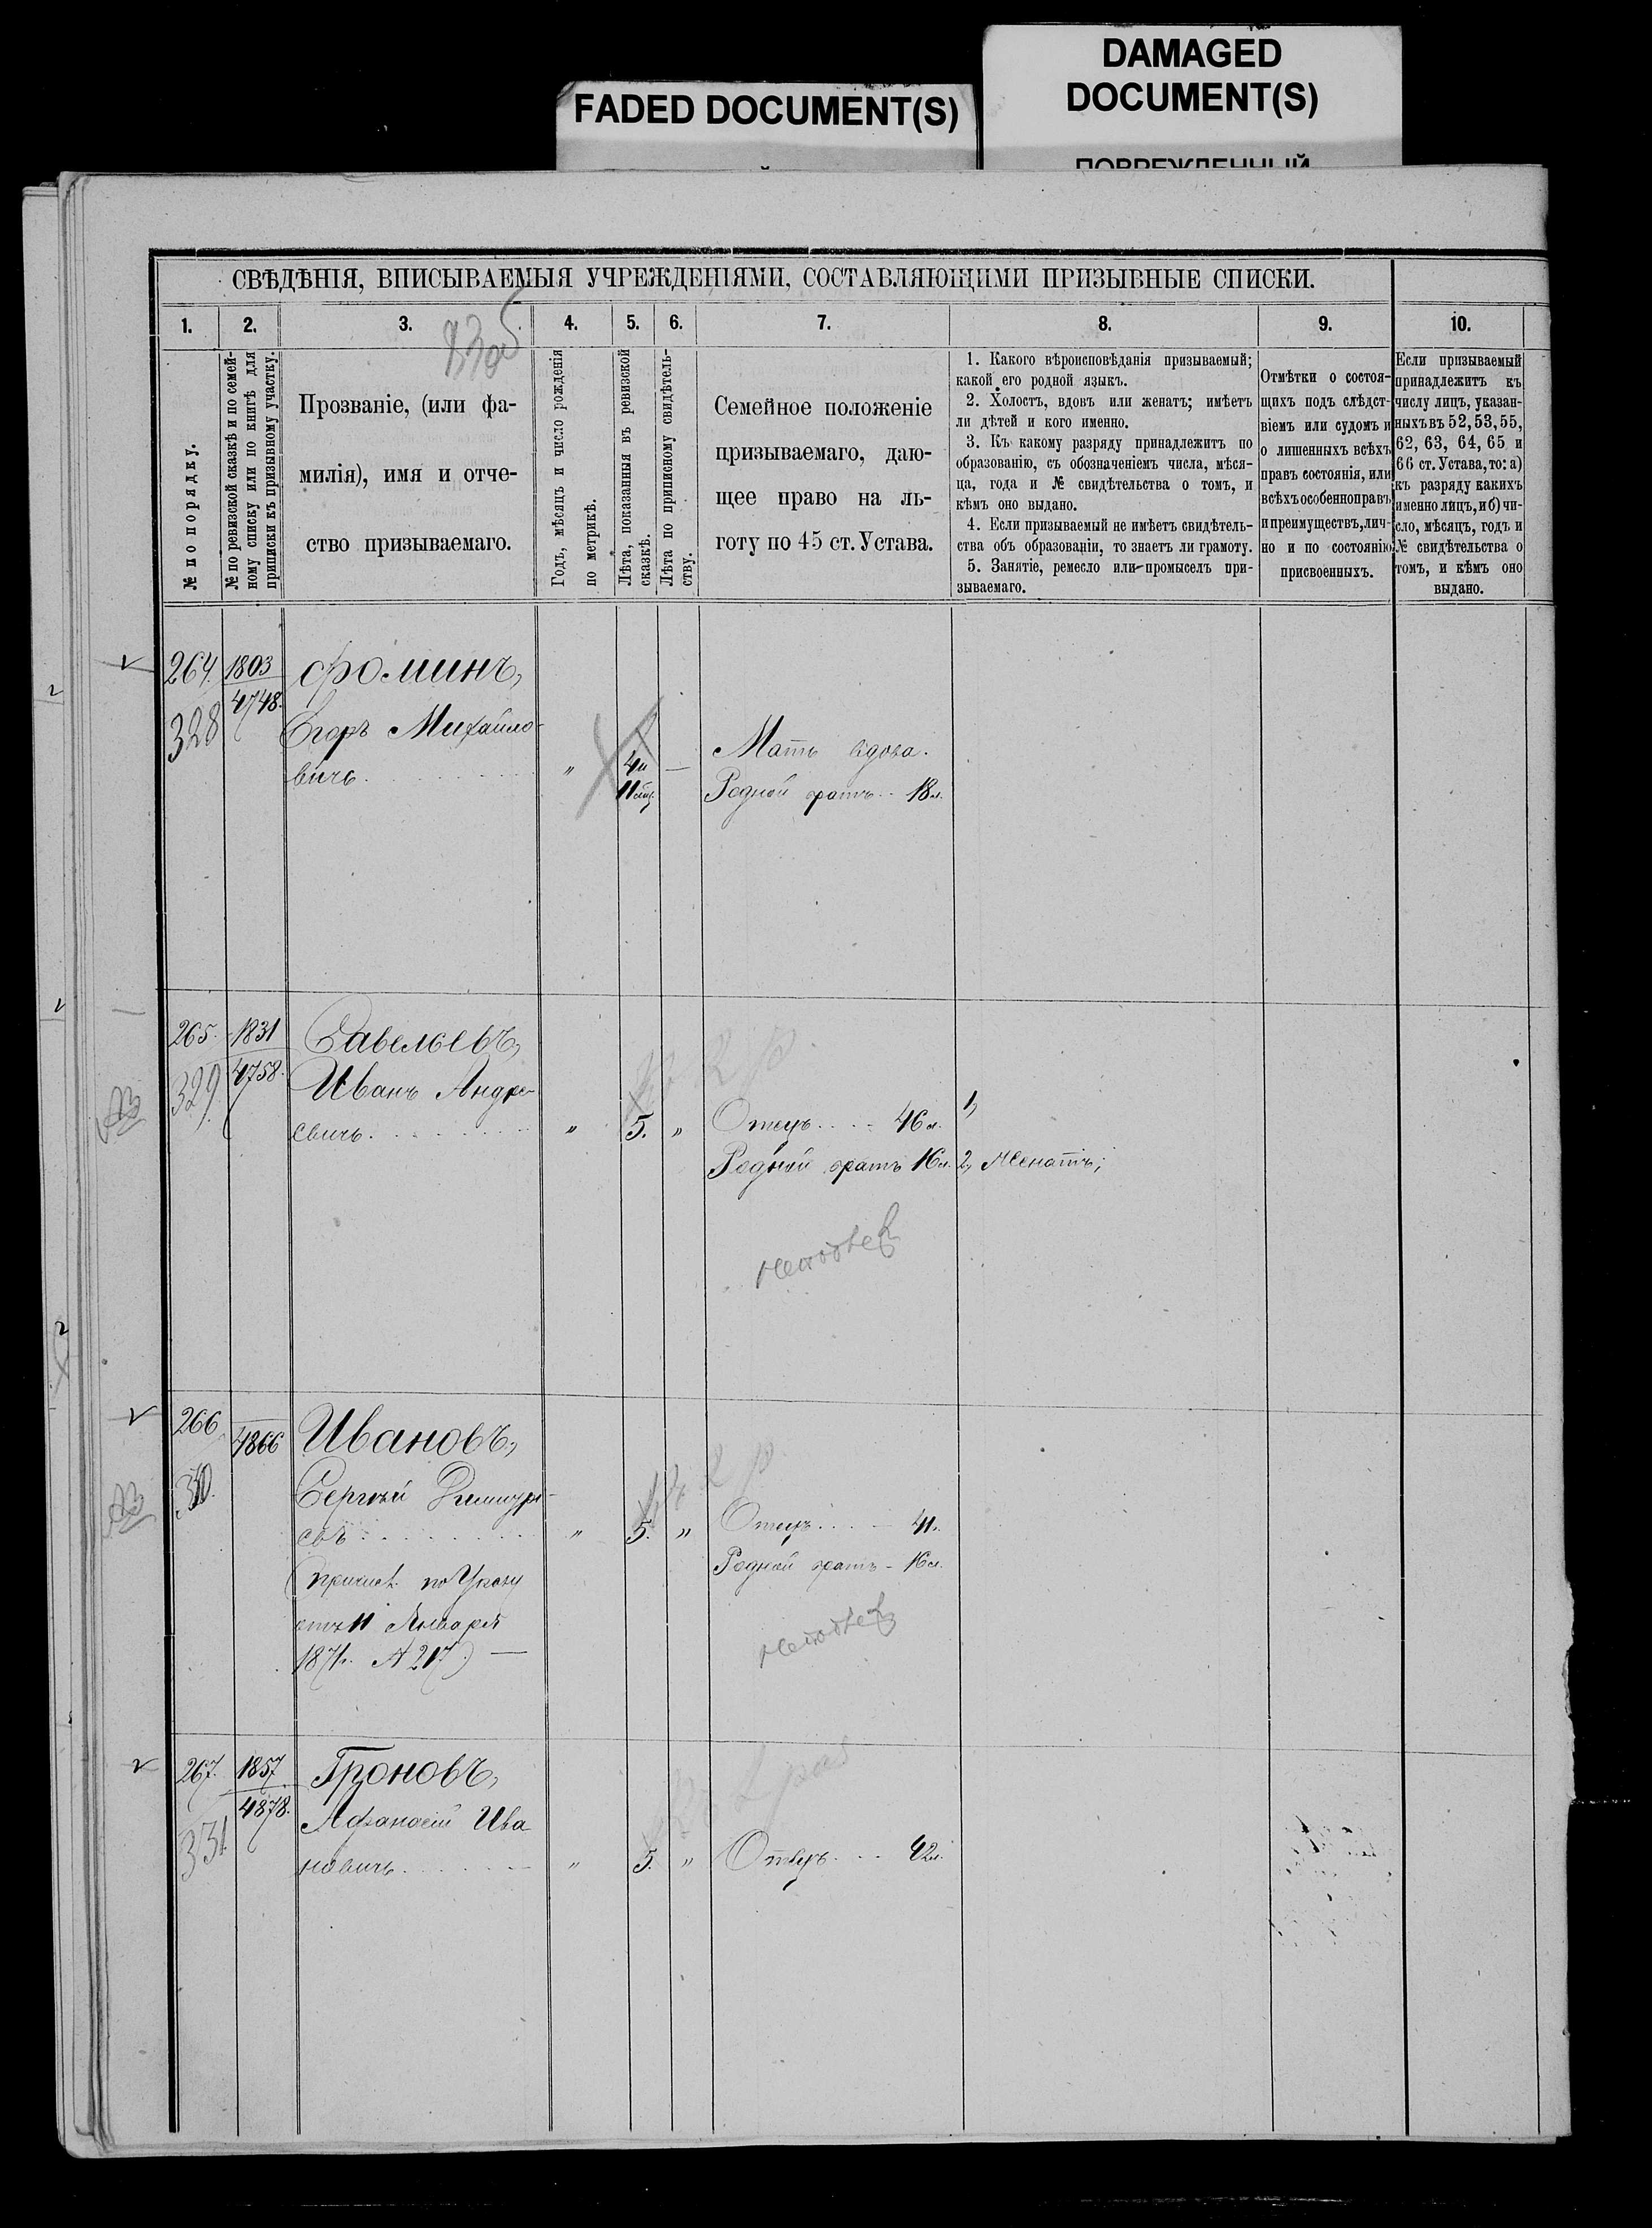 FADED DOCUMENT(S)
DAMAGED
DOCUMENT(S)
ПОВРЕЖДЕННЫЙ
СВѢДѢНІЯ, ВПИСЫВАЕМЫЯ УЧРЕЖДЕНІЯМИ, СОСТАВЛЯЮЩИМИ ПРИЗЫВНЫЕ СПИСКИ.
1. 2. 3. 4. 5. 6. 7. 8. 9. 10.
№ по порядку.
№ по ревизской сказкѣ и по семей-
ному списку или по книгѣ для
приписки къ призывному участку.
Прозваніе, (или фа-
милія), имя и отче-
ство призываемаго.
Годъ, мѣсяцъ и число рожденія
по метрикѣ.
Лѣта, показанныя въ ревизской
сказкѣ.
Лѣта по приписному свидѣтель-
ству.
Семейное положеніе
призываемаго, даю-
щее право на ль-
готу по 45 ст. Устава.
1. Какого вѣроисповѣданія призываемый;
какой его родной языкъ.
2. Холостъ, вдовъ или женатъ; имѣетъ
ли дѣтей и кого именно.
3. Къ какому разряду принадлежитъ по
образованію, съ обозначеніемъ числа, мѣся-
ца, года и № свидѣтельства о томъ, и
кѣмъ оно выдано.
4. Если призываемый не имѣетъ свидѣтель-
ства объ образованіи, то знаетъ ли грамоту.
5. Занятіе, ремесло или промыселъ при-
зываемаго.
Отмѣтки о состоя-
щихъ подъ слѣдст-
віемъ или судомъ и
о лишенныхъ всѣхъ
правъ состоянія, или
всѣхъ особенно правъ
и преимуществъ, лич-
но и по состоянію
присвоенныхъ.
Если призываемый
принадлежитъ къ
числу лицъ, указан-
ныхъ въ 52, 53, 55,
62, 63, 64, 65 и
66 ст. Устава, то: а)
къ разряду какихъ
именно лицъ, и б) чи-
сло, мѣсяцъ, годъ и
№ свидѣтельства о
томъ, и кѣмъ оно
выдано.
264. 1803 Фоминъ,
328 4748. Егоръ Михайло-
вичъ. " 4 — Мать вдова.
11 мѣс. Родной братъ 18 л.
265. 1831 Савельевъ,
329. 4758. Иванъ Андре-
евичъ. " 5. " Отецъ 46 л. 1,
Родной братъ 16 л. 2, Женатъ;
266 4866 Ивановъ,
330. Сергѣй Дмитрі-
евъ " 5. " Отецъ 41 л.
Родной братъ - 16 л.
(причисл. по Указу
отъ 11 Января
1871 г. № 217.) —
267. 1857 Гроновъ,
331. 4878. Афанасій Ива
новичъ " 5. " Отецъ 42 л.